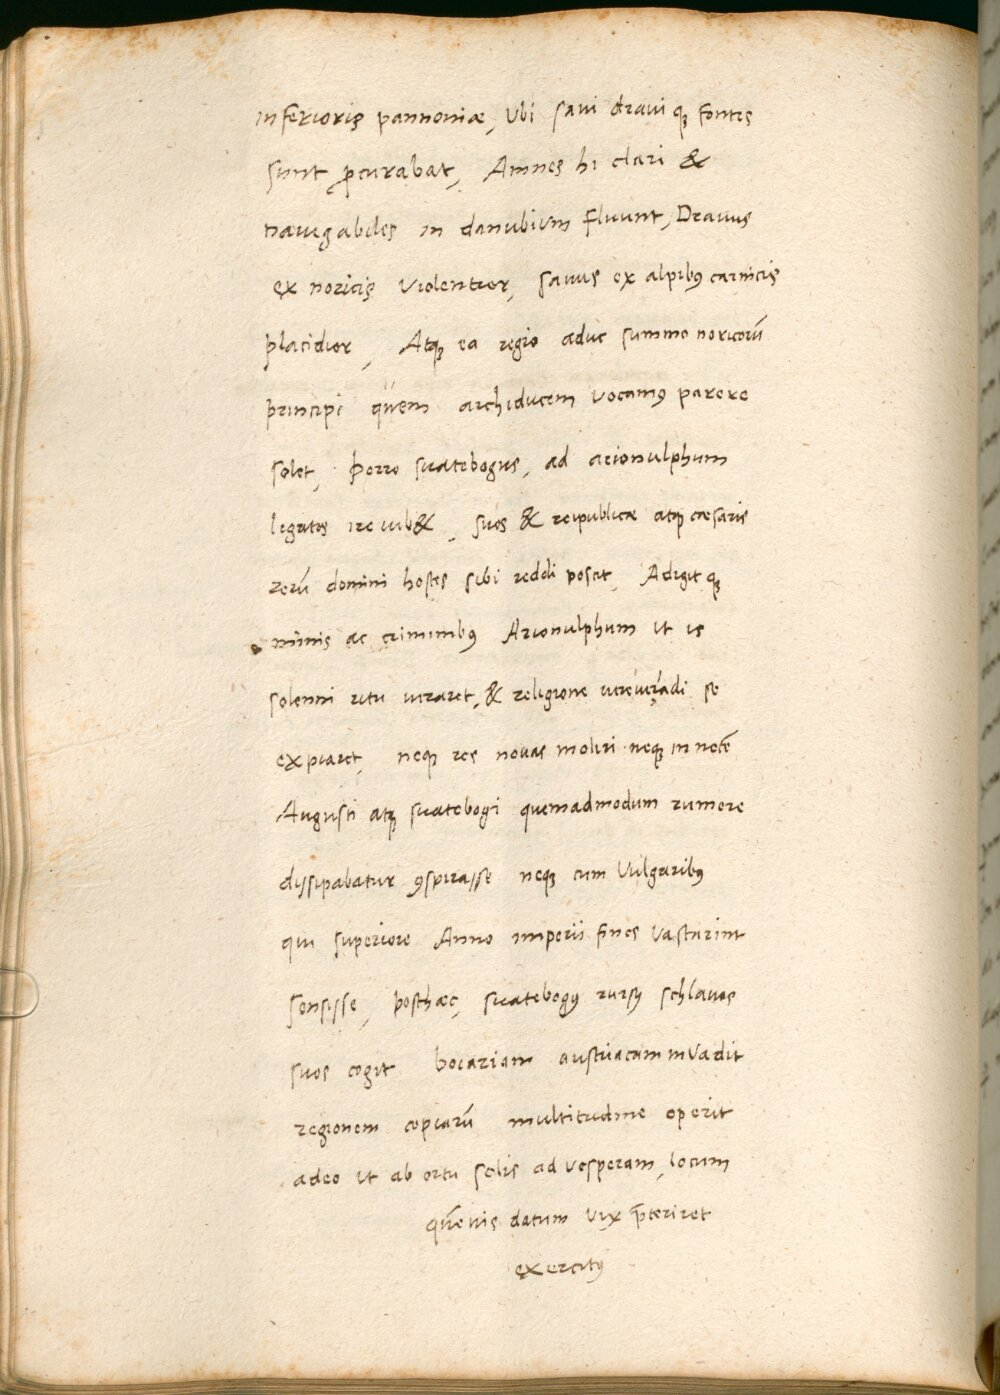 inferioris pannoniæ, Vbi savi dravi qꝫ fontes
sunt ꝓcurabat, Amnes hi clari &
navigabiles in danubium fluunt, Dravus
ex noricis violentior, savus ex alpibꝰ carnicis
placidior, Atqꝫ ea regio aduc summo noricorū
principi quem archiducem vocamꝰ parere
solet, porro suatebogus, ad arionulphum
legatos ire iub&, suos & reipublicæ atqꝫ cæsaris
rerū domini hostes sibi reddi poscit, Adigit qꝫ
minis ac criminibꝰ Arionulphum ut is
solenni ritu iuraret, & religione iureiurādi se
expiaret, neqꝫ res novas moliri neqꝫ in necē
Augusti atqꝫ suatebogi quemadmodum rumore
dissipabatur ꝯspirasse neqꝫ cum Vulgaribꝰ
qui superiore Anno imperii fines Vastarint
sensisse, posthæc, suatebogꝰ rursꝰ schlavos
suos cogit boiariam austriacam inVadit
regionem copiarū multitudine operit
adeo ut ab ortu solis ad vesperam, locum
datum vix p̄teriret
exercitꝰ